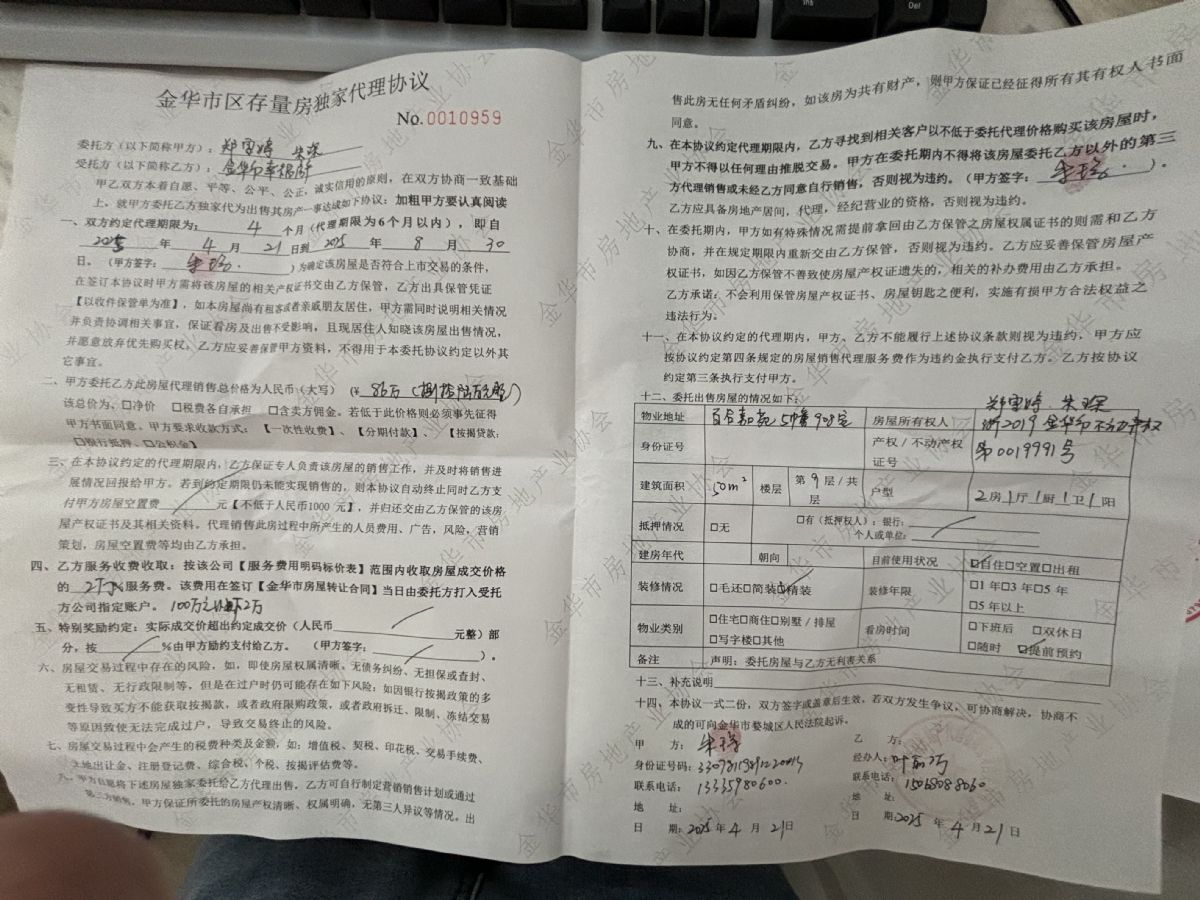 金华市区存量房独家代理协议
No.0010959
委托方（以下简称甲方）：
受托方（以下简称乙方）：
甲乙双方本着自愿、平等、公平、公正，诚实信用的原则，在双方协商一致基础
上，就甲方委托乙方独家代为出售其房产一事达成如下协议：加粗甲方要认真阅读
一、双方约定代理期限为： 4 个月（代理期限为6个月以内），即自
2025 年 4 月 21 日到 2025 年 8 月 30
日。（甲方签字： ）为确定该房屋是否符合上市交易的条件，
在签订本协议时甲方需将该房屋的相关产权证书交由乙方保管，乙方出具保管凭证
【以收件保管单为准】，如本房屋尚有租客或者亲戚朋友居住，甲方需同时说明相关情况
并负责协调相关事宜，保证看房及出售不受影响，且现居住人知晓该房屋出售情况，
并愿意放弃优先购买权，乙方应妥善保管甲方资料，不得用于本委托协议约定以外其
它事宜。
二、甲方委托乙方此房屋代理销售总价格为人民币（大写）（¥ 86万
该总价为、□净价 □税费各自承担 □含卖方佣金。若低于此价格则必须事先征得
甲方书面同意。甲方要求收款方式：【一次性收费】、【分期付款】、【按揭贷款：
□银行抵押、□公积金】
三、在本协议约定的代理期限内，乙方保证专人负责该房屋的销售工作，并及时将销售进
展情况回报给甲方。若到约定期限仍未能实现销售的，则本协议自动终止同时乙方支
付甲方房屋空置费 元【不低于人民币1000 元】，并归还交由乙方保管的该房
屋产权证书及其相关资料。代理销售此房过程中所产生的人员费用、广告，风险，营销
策划，房屋空置费等均由乙方承担。
四、乙方服务收费收取：按该公司【服务费用明码标价表】范围内收取房屋成交价格
的 2万 %服务费。该费用在签订【金华市房屋转让合同】当日由委托方打入受托
方公司指定账户。 100万以下2万
五、特别奖励约定：实际成交价超出约定成交价（人民币 元整）部
分，按 %由甲方励约支付给乙方。（甲方签字： ）。
六、房屋交易过程中存在的风险，如，即使房屋权属清晰、无债务纠纷、无担保或查封、
无租赁、无行政限制等，但是在过户时仍可能存在如下风险：如因银行按揭政策的多
变性导致买方不能获取按揭款，或者政府限购政策，或者政府拆迁、限制、冻结交易
等原因致使无法完成过户，导致交易终止的风险。
七、房屋交易过程中会产生的税费种类及金额，如：增值税、契税、印花税、交易手续费、
土地出让金、注册登记费、综合税，个税、按揭评估费等。
八、甲方自愿将下述房屋独家委托给乙方代理出售，乙方可自行制定营销销售计划或通过
第三方销售，甲方保证所委托的房屋产权清晰、权属明确，无第三人异议等情况。出
售此房无任何矛盾纠纷，如该房为共有财产，则甲方保证已经征得所有其有权人书面
同意。
九、在本协议约定代理期限内，乙方寻找到相关客户以不低于委托代理价格购买该房屋时，
甲方不得以任何理由推脱交易。甲方在委托期内不得将该房屋委托乙方以外的第三
方代理销售或未经乙方同意自行销售，否则视为违约。（甲方签字： ）。
乙方应具备房地产居间，代理，经纪营业的资格，否则视为违约。
十、在委托期内，甲方如有特殊情况需提前拿回由乙方保管之房屋权属证书的则需和乙方
协商，并在规定期限内重新交由乙方保管，否则视为违约。乙方应妥善保管房屋产
权证书，如因乙方保管不善致使房屋产权证遗失的，相关的补办费用由乙方承担。
乙方承诺：不会利用保管房屋产权证书、房屋钥匙之便利，实施有损甲方合法权益之
违法行为。
十一、在本协议约定的代理期内，甲方、乙方不能履行上述协议条款则视为违约，甲方应
按协议约定第四条规定的房屋销售代理服务费作为违约金执行支付乙方。乙方按协议
约定第三条执行支付甲方。
十二、委托出售房屋的情况如下：
物业地址 百合嘉苑5幢908室 房屋所有权人
身份证号 产权／不动产权证号 浙2019金华市不动产权第0019991号
建筑面积 50m² 楼层 第 9 层/共 层 户型 2房1厅1厨1卫1阳
抵押情况 □无 □有（抵押权人）：银行： 个人或单位：
建房年代 朝向 目前使用状况 □自住□空置□出租
装修情况 □毛还□简装□精装 装修年限 □1年□3年□5年 □5年以上
物业类别 □住宅□商住□别墅／排屋 □写字楼□其他 看房时间 □下班后 □双休日 □随时 □提前预约
备注 声明：委托房屋与乙方无利害关系
十三、补充说明
十四、本协议一式二份，双方签字或盖章后生效，若双方发生争议，可协商解决，协商不
成的可向金华市婺城区人民法院起诉。
甲 方： 乙 方：
身份证号码： 经办人：
联系电话：13335980600. 联系电话：15068088060
地 址： 地 址：
日 期：2025年4月21日 日 期：2025年4月21日
金华市房地产业协会